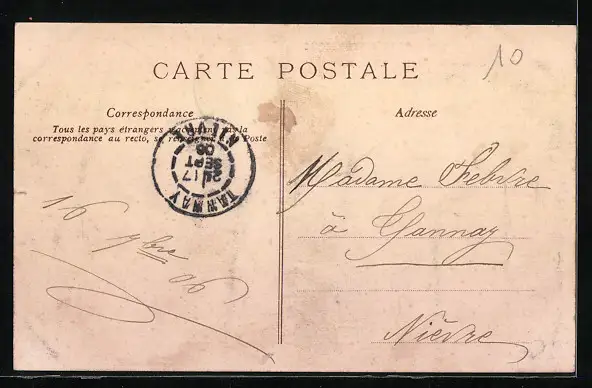 CARTE POSTALE
10
Correspondance
Tous les pays étrangers n'acceptent pas la
correspondance au recto, se renseigner à la Poste
TANNAY
NIÈVRE
17
SEPT
06
16
7bre
06
Adresse
Madame Febvre
à Tannay
Nièvre